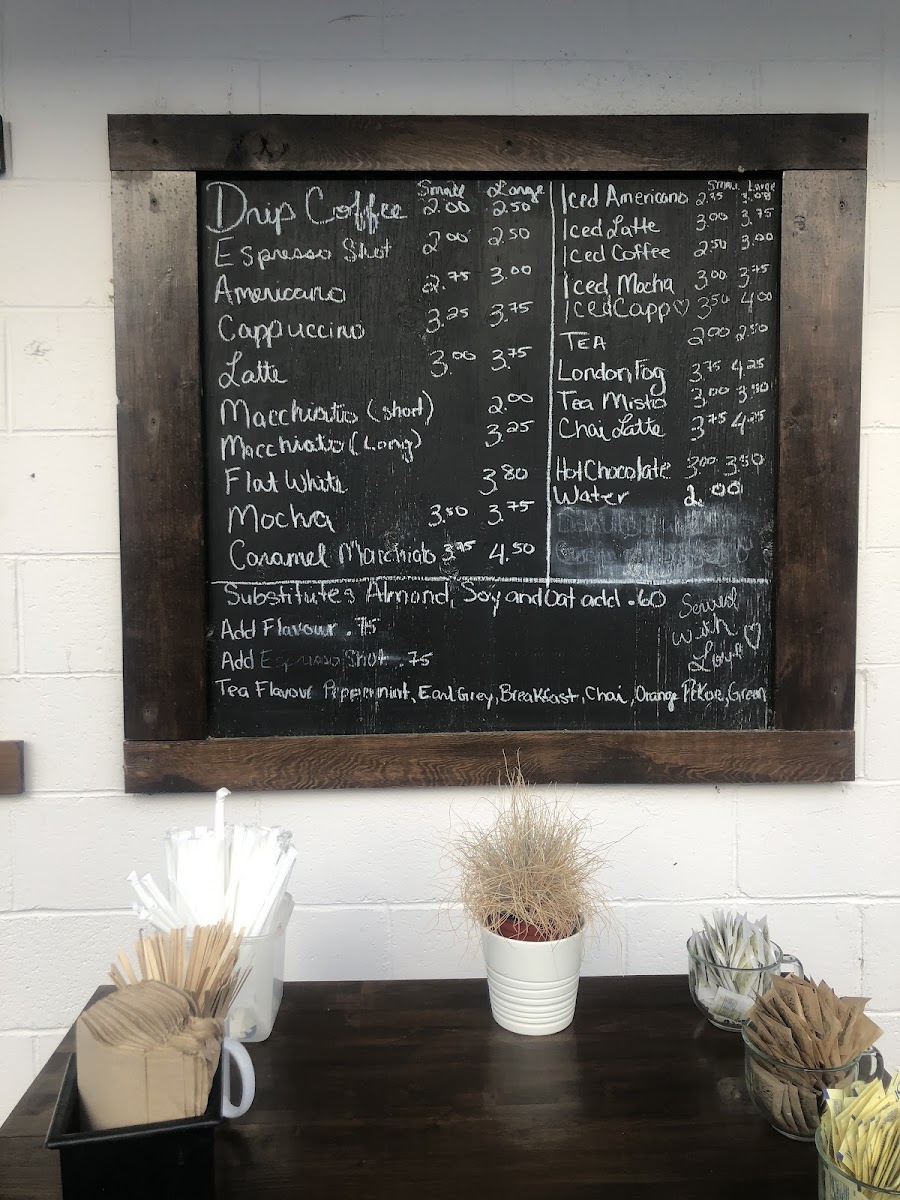 Small Large
Drip Coffee 2.00 2.50
Espresso Shot 2.00 2.50
Americano 2.75 3.00
Cappuccino 3.25 3.75
Latte 3.00 3.75
Macchiato (short) 2.00
Macchiato (Long) 3.25
Flat White 3.80
Mocha 3.50 3.75
Caramel Macchiato 3.75 4.50
Small Large
Iced Americano 2.75 3.00
Iced Latte 3.00 3.75
Iced Coffee 2.50 3.00
Iced Mocha 3.00 3.75
Iced Capp ♡ 3.50 4.00
TEA 2.00 2.50
London Fog 3.75 4.25
Tea Misto 3.00 3.50
Chai Latte 3.75 4.25
Hot Chocolate 3.00 3.50
Water 2.00
Substitutes Almond, Soy and Oat add .60
Add Flavour .75
Add Espresso Shot .75
Served
with ♡
Love
Tea Flavour Peppermint, Earl Grey, Breakfast, Chai, Orange Pekoe, Green